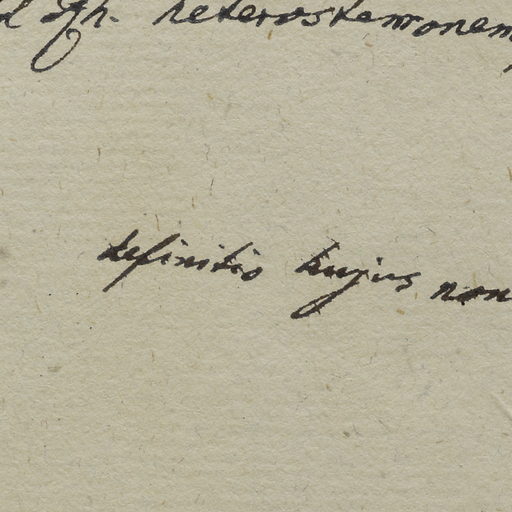 heterostemonem
definitio hujus non